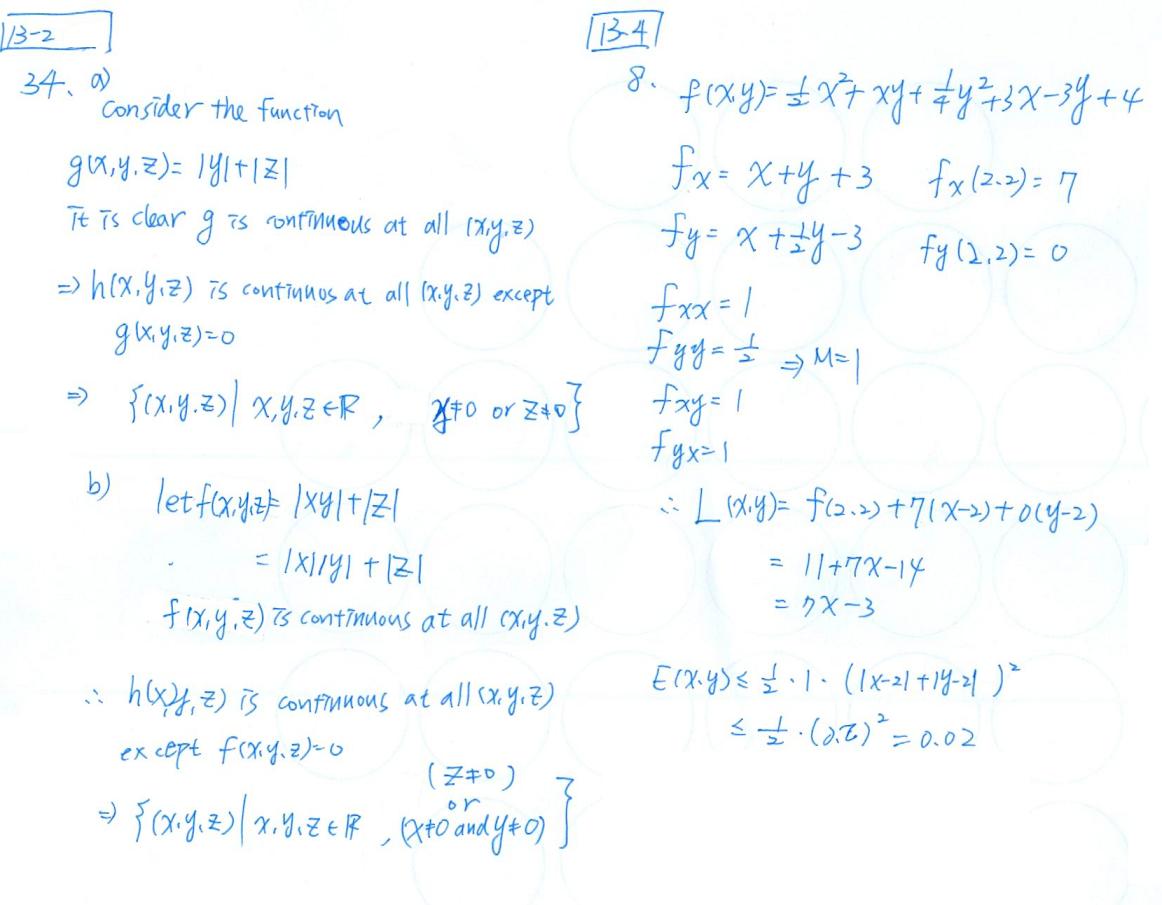 13-2
34. a)
Consider the function
g(x,y,z)= |y|+|z|
it is clear g is continuous at all (x,y,z)
⇒ h(x,y,z) is continuos at all (x,y,z) except
g(x,y,z)=0
⇒ {(x,y,z)| x,y,z∈ℝ, y≠0 or z≠0}
b)
let f(x,y,z)= |xy|+|z|
= |x||y|+|z|
f(x,y,z) is continuous at all (x,y,z)
∴ h(x,y,z) is continuous at all (x,y,z)
except f(x,y,z)=0
(z≠0)
or
⇒ {(x,y,z)| x,y,z∈ℝ, (x≠0 and y≠0)}
13-4
8. f(x,y)= 1/2 x²+ xy+ 1/4 y²+3x-3y+4
fx= x+y+3 fx(2,2)= 7
fy= x+1/2y-3 fy(2,2)= 0
fxx=1
fyy=1/2 ⇒ M=1
fxy=1
fyx=1
∴ L(x,y)= f(2,2)+7(x-2)+0(y-2)
= 11+7x-14
= 7x-3
E(x,y)≤ 1/2 · 1 · (|x-2|+|y-2|)²
≤ 1/2 · (0.2)² = 0.02